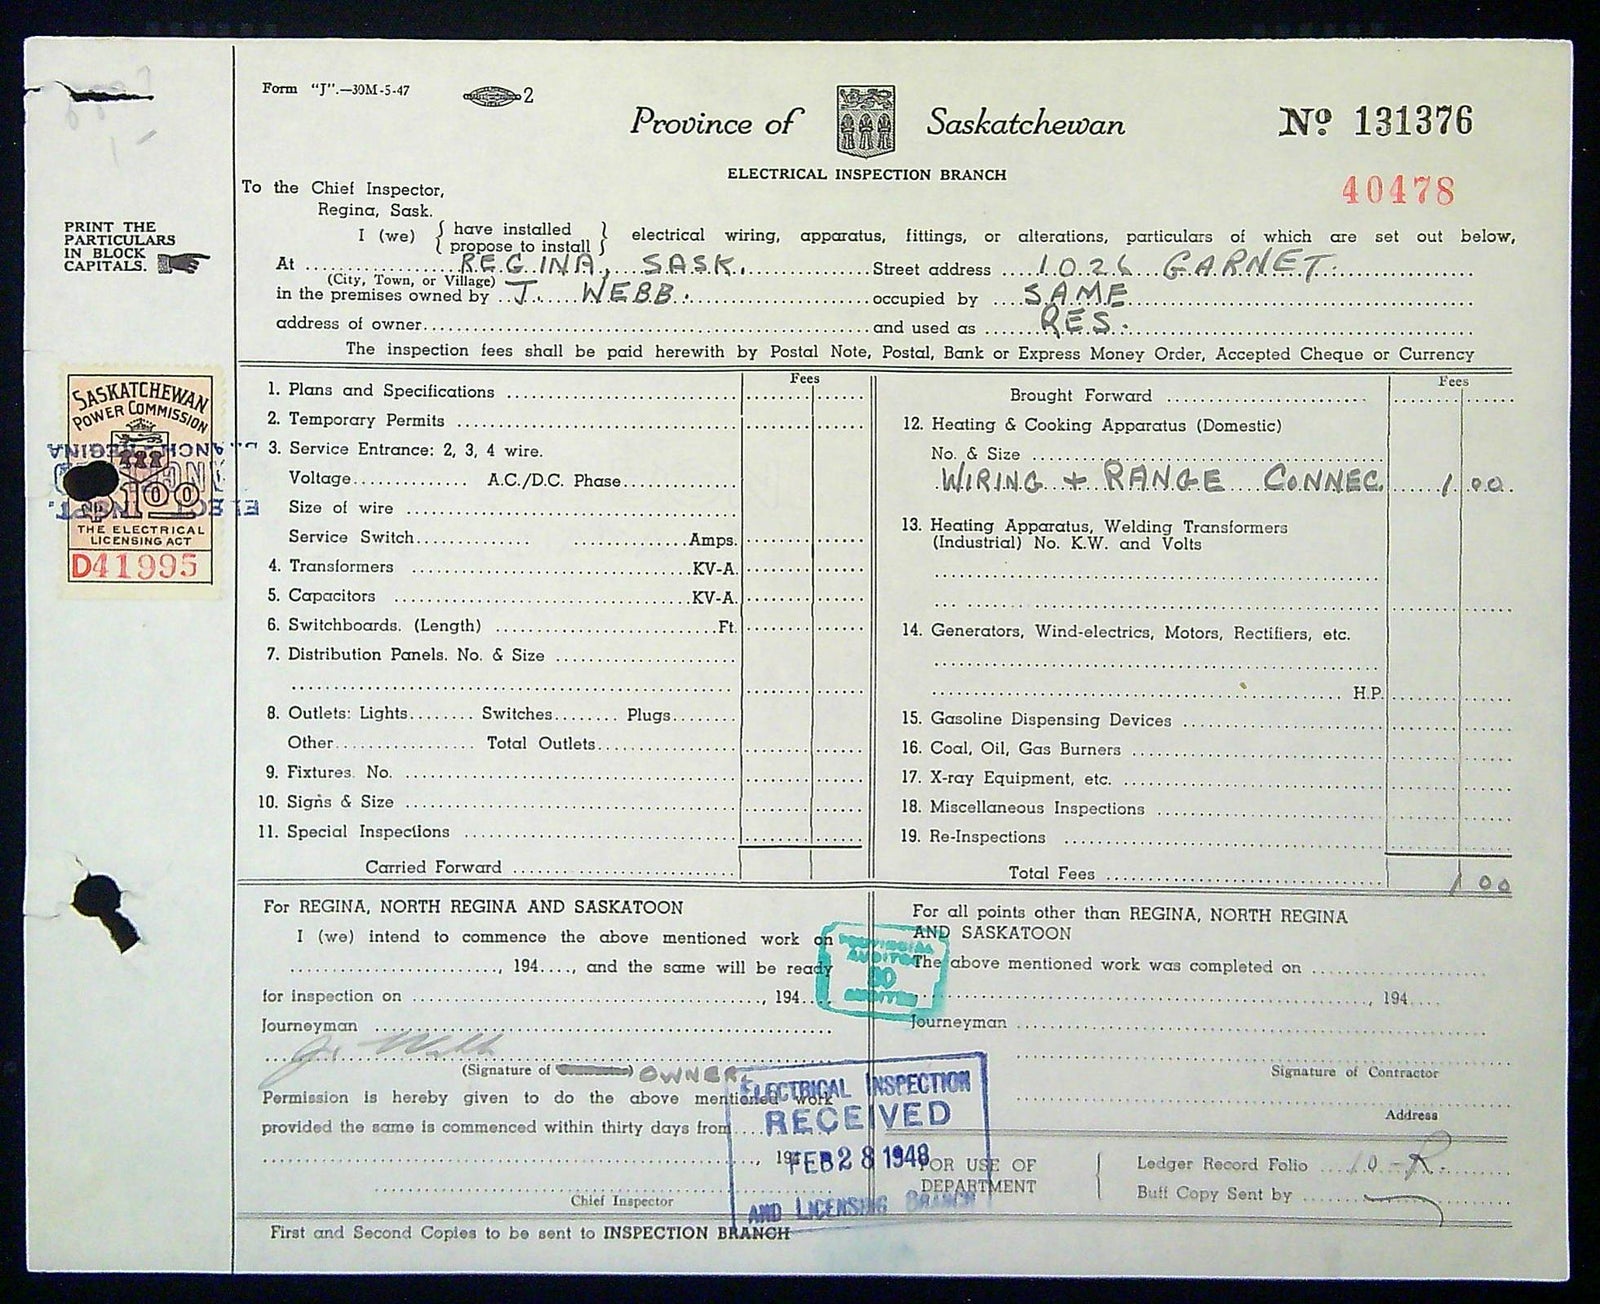 Form "J".—30M-5-47
2
Province of Saskatchewan
Nº 131376
ELECTRICAL INSPECTION BRANCH
40478
To the Chief Inspector,
Regina, Sask.
PRINT THE
PARTICULARS
IN BLOCK
CAPITALS.
I (we) { have installed propose to install } electrical wiring, apparatus, fittings, or alterations, particulars of which are set out below,
At REGINA, SASK. Street address 1026 GARNET.
(City, Town, or Village)
in the premises owned by J. WEBB. occupied by SAME
address of owner and used as RES.
The inspection fees shall be paid herewith by Postal Note, Postal, Bank or Express Money Order, Accepted Cheque or Currency
SASKATCHEWAN
POWER COMMISSION
$100
THE ELECTRICAL
LICENSING ACT
D41995
ELECT. INSPT.
BRANCH REGINA
Fees
1. Plans and Specifications
2. Temporary Permits
3. Service Entrance: 2, 3, 4 wire.
Voltage A.C./D.C. Phase
Size of wire
Service Switch Amps.
4. Transformers KV-A.
5. Capacitors KV-A.
6. Switchboards. (Length) Ft.
7. Distribution Panels. No. & Size
8. Outlets: Lights Switches Plugs
Other Total Outlets
9. Fixtures. No.
10. Signs & Size
11. Special Inspections
Carried Forward
Fees
Brought Forward
12. Heating & Cooking Apparatus (Domestic)
No. & Size
WIRING + RANGE CONNEC. 1 00
13. Heating Apparatus, Welding Transformers
(Industrial) No. K.W. and Volts
14. Generators, Wind-electrics, Motors, Rectifiers, etc.
H.P.
15. Gasoline Dispensing Devices
16. Coal, Oil, Gas Burners
17. X-ray Equipment, etc.
18. Miscellaneous Inspections
19. Re-Inspections
Total Fees 1 00
For REGINA, NORTH REGINA AND SASKATOON
I (we) intend to commence the above mentioned work on
, 194...., and the same will be ready
for inspection on , 194....
Journeyman
J. Webb
(Signature of ) OWNER.
Permission is hereby given to do the above mentioned work
provided the same is commenced within thirty days from
, 194
Chief Inspector
First and Second Copies to be sent to INSPECTION BRANCH
For all points other than REGINA, NORTH REGINA
AND SASKATOON
The above mentioned work was completed on
, 194....
Journeyman
Signature of Contractor
Address
FOR USE OF
DEPARTMENT
Ledger Record Folio 10-R.
Buff Copy Sent by
PROVINCIAL
AUDITOR
AUDITED
ELECTRICAL INSPECTION
RECEIVED
FEB 28 1948
AND LICENSING BRANCH